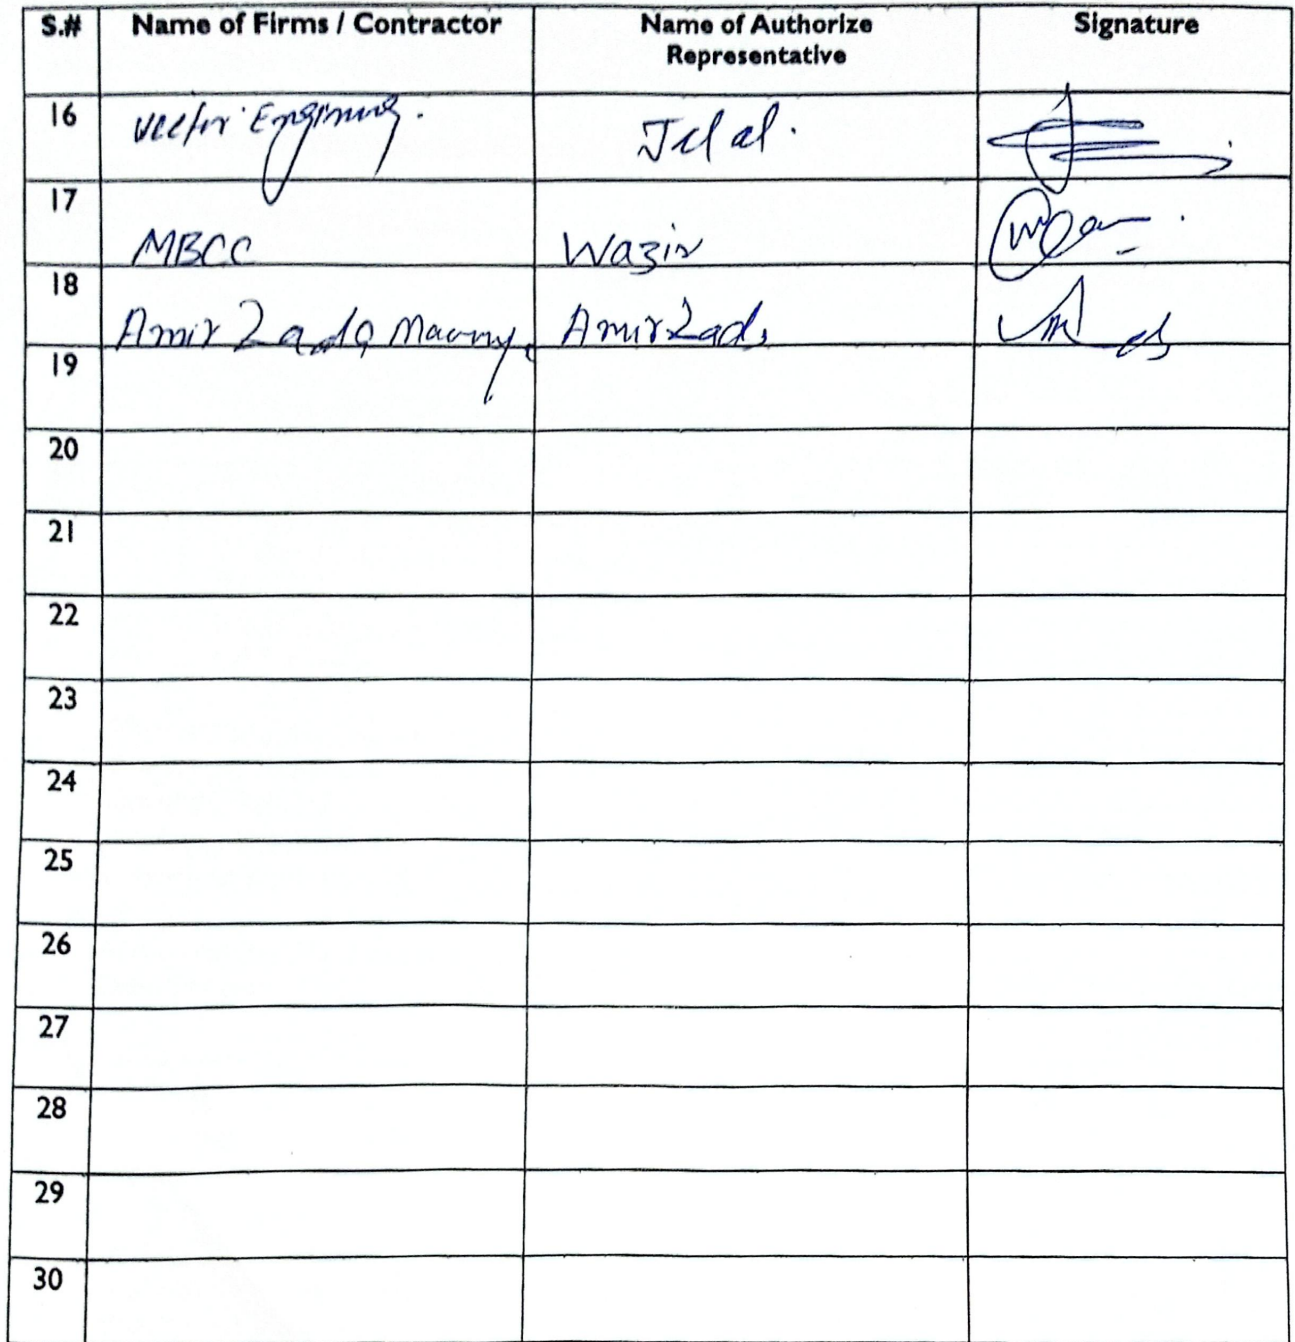 S.# Name of Firms / Contractor Name of Authorize Representative Signature
16 Vector Engineering. Jelal.
17 MBCC Wazir
18 Amir Zada Amir Zada
19
20
21
22
23
24
25
26
27
28
29
30